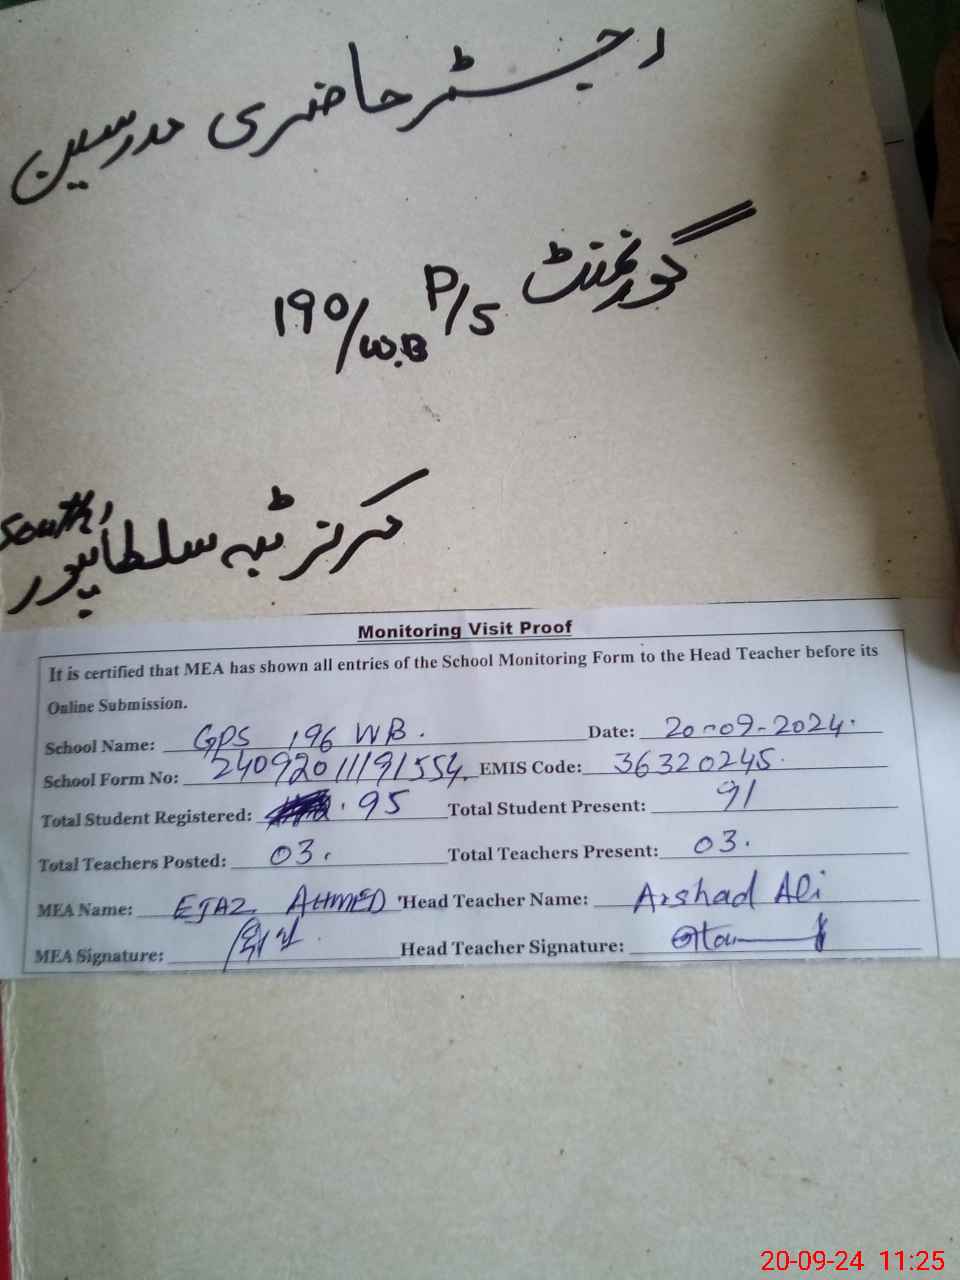 رجسٹر حاضری مدرسین
گورنمنٹ P/S 190/W.B
مرکز ٹبہ سلطانپور South
Monitoring Visit Proof
It is certified that MEA has shown all entries of the School Monitoring Form to the Head Teacher before its
Online Submission.
School Name: GPS 196 WB. Date: 20-09-2024.
School Form No: 24092011191554. EMIS Code: 36320245.
Total Student Registered: . 95 Total Student Present: 91
Total Teachers Posted: 03. Total Teachers Present: 03.
MEA Name: EJAZ AHMED Head Teacher Name: Arshad Ali
MEA Signature: Head Teacher Signature:
20-09-24 11:25